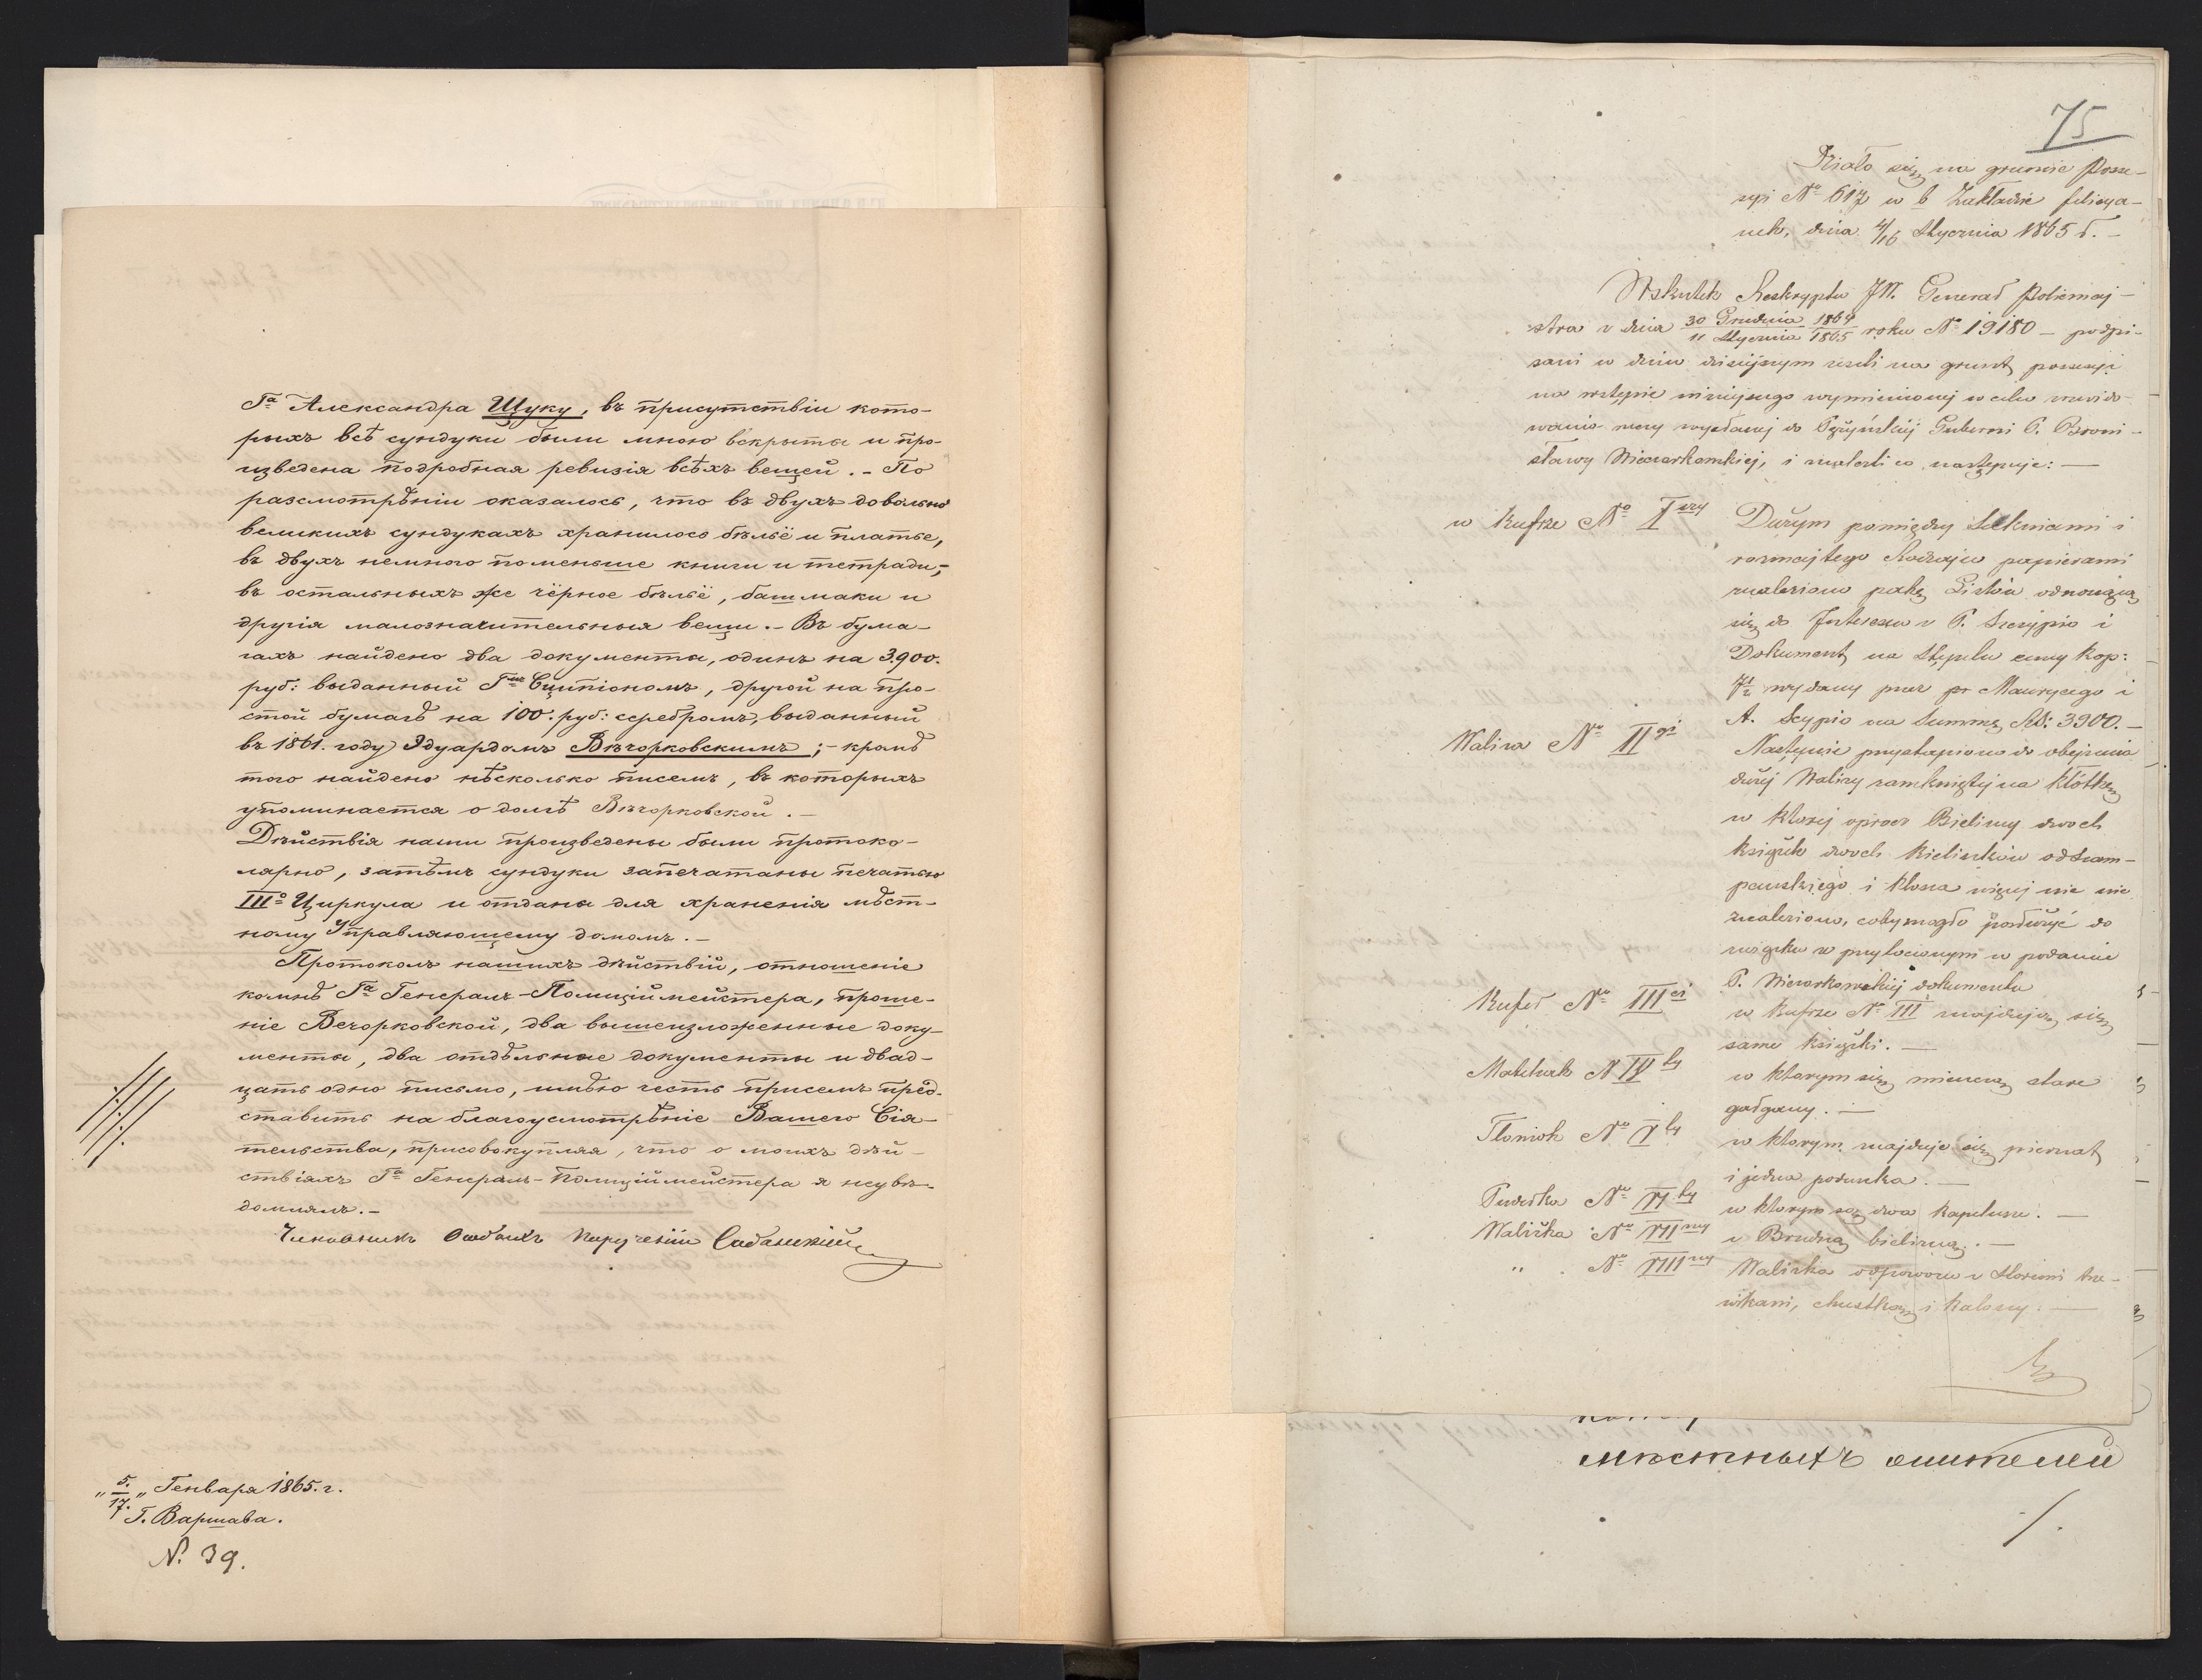 Га Александра Щуку, въ присутствіи кото-
рыхъ всѣ сундуки были мною вскрыты и про-
изведена подробная ревизія всѣхъ вещей. - По
разсмотрѣніи оказалось, что въ двухъ довольно
великихъ сундукахъ хранилось бѣльё и платье,
въ двухъ немного поменьше книги и тетради;-
въ остальныхъ же чёрное бѣльё, башмаки и
другія малозначительныя вещи. - Въ бума-
гахъ найдено два документа, одинъ на 3900.
руб: выданный Гмъ Сципіономъ, другой на про-
стой бумагѣ на 100. руб: серебромъ, выданный
въ 1861. году Эдуардомъ Вѣчорковскимъ; - кромѣ
того найдено нѣсколько писемъ, въ которыхъ
упоминается о долгѣ Вѣчорковской. -
Дѣйствія наши произведены были протоко-
лярно, затѣмъ сундуки запечатаны печатью
IIIго Циркула и отданы для храненія мѣст-
ному Управляющему домомъ. -
Протоколъ нашихъ дѣйствій, отношеніе
ко мнѣ Га Генералъ-Полиціймейстера, проше-
ніе Вечорковской, два вышеизложенные доку-
менты, два отдѣльные документы и двад-
цать одно письмо, имѣю честь присемъ пред-
ставить на благоусмотрѣніе Вашего Сія-
тельства, присовокупляя, что о моихъ дѣй-
ствіяхъ Га Генералъ-Полиціймейстера я неувѣ-
домлялъ. -
Чиновникъ Особыхъ Порученій
„5./17.„ Генваря 1865. г.
Г. Варшава.
N. 39.
75
Działo się na gruncie Posse-
syi No 617 w b Zakładzie felicya-
nek, dnia 4/16 Stycznia 1865 r. -
Wskutek Reskryptu JW. Generał Policmaj-
stra z dnia 30 Grudnia 1864 / 11 Stycznia 1865 roku No 19180 - podpi-
sani w dniu dzisiejszym zeszli na grunt possesyi
na wstępie niniejszego wymienionej w celu zrewido-
wania rzeczy wysłanej do Guberni P. Broni-
sławy Wieczorkowskiej, i znaleźli co następuje: -
w Kufrze No I szy Dużym pomiędzy Sukniami i
rozmajtego Rodzaju papierami
znaleziono pakę Listów odnoszącą
się do Interessu z P. Scypio i
Dokument na Stęplu ceny kop:
7½ wydany przez pr Maurycego i
A. Scypio na Summę RS: 3900. -
Waliza No II gi Następnie przystąpiono do obejrzenia
dużej Walizy zamkniętej na kłótkę
w której oprócz Bielizny dwóch
książek dwoch kieliszków od szam-
pańskiego i klosza więcej nic nie
znaleziono, coby mogło posłużyć do
związku w przytoczonym w podaniu
P. Wieczorkowskiej dokumentu
Kufer No III ci w kufrze No III znajdują się
same książki. -
N IV ty w ktorym się mieszczą stare
gałgany. -
Tłomok No V ty w ktorym znajduje się piernat
i jedna poduszka. -
Pudełko No VI ty w ktorym są dwa kapelusze. -
Walizka No VII my z Brudną bielizną. -
„ No VIII my Walizka z Staremi trze-
wikami, chustką i kaloszy. -
мѣстныхъ жителей